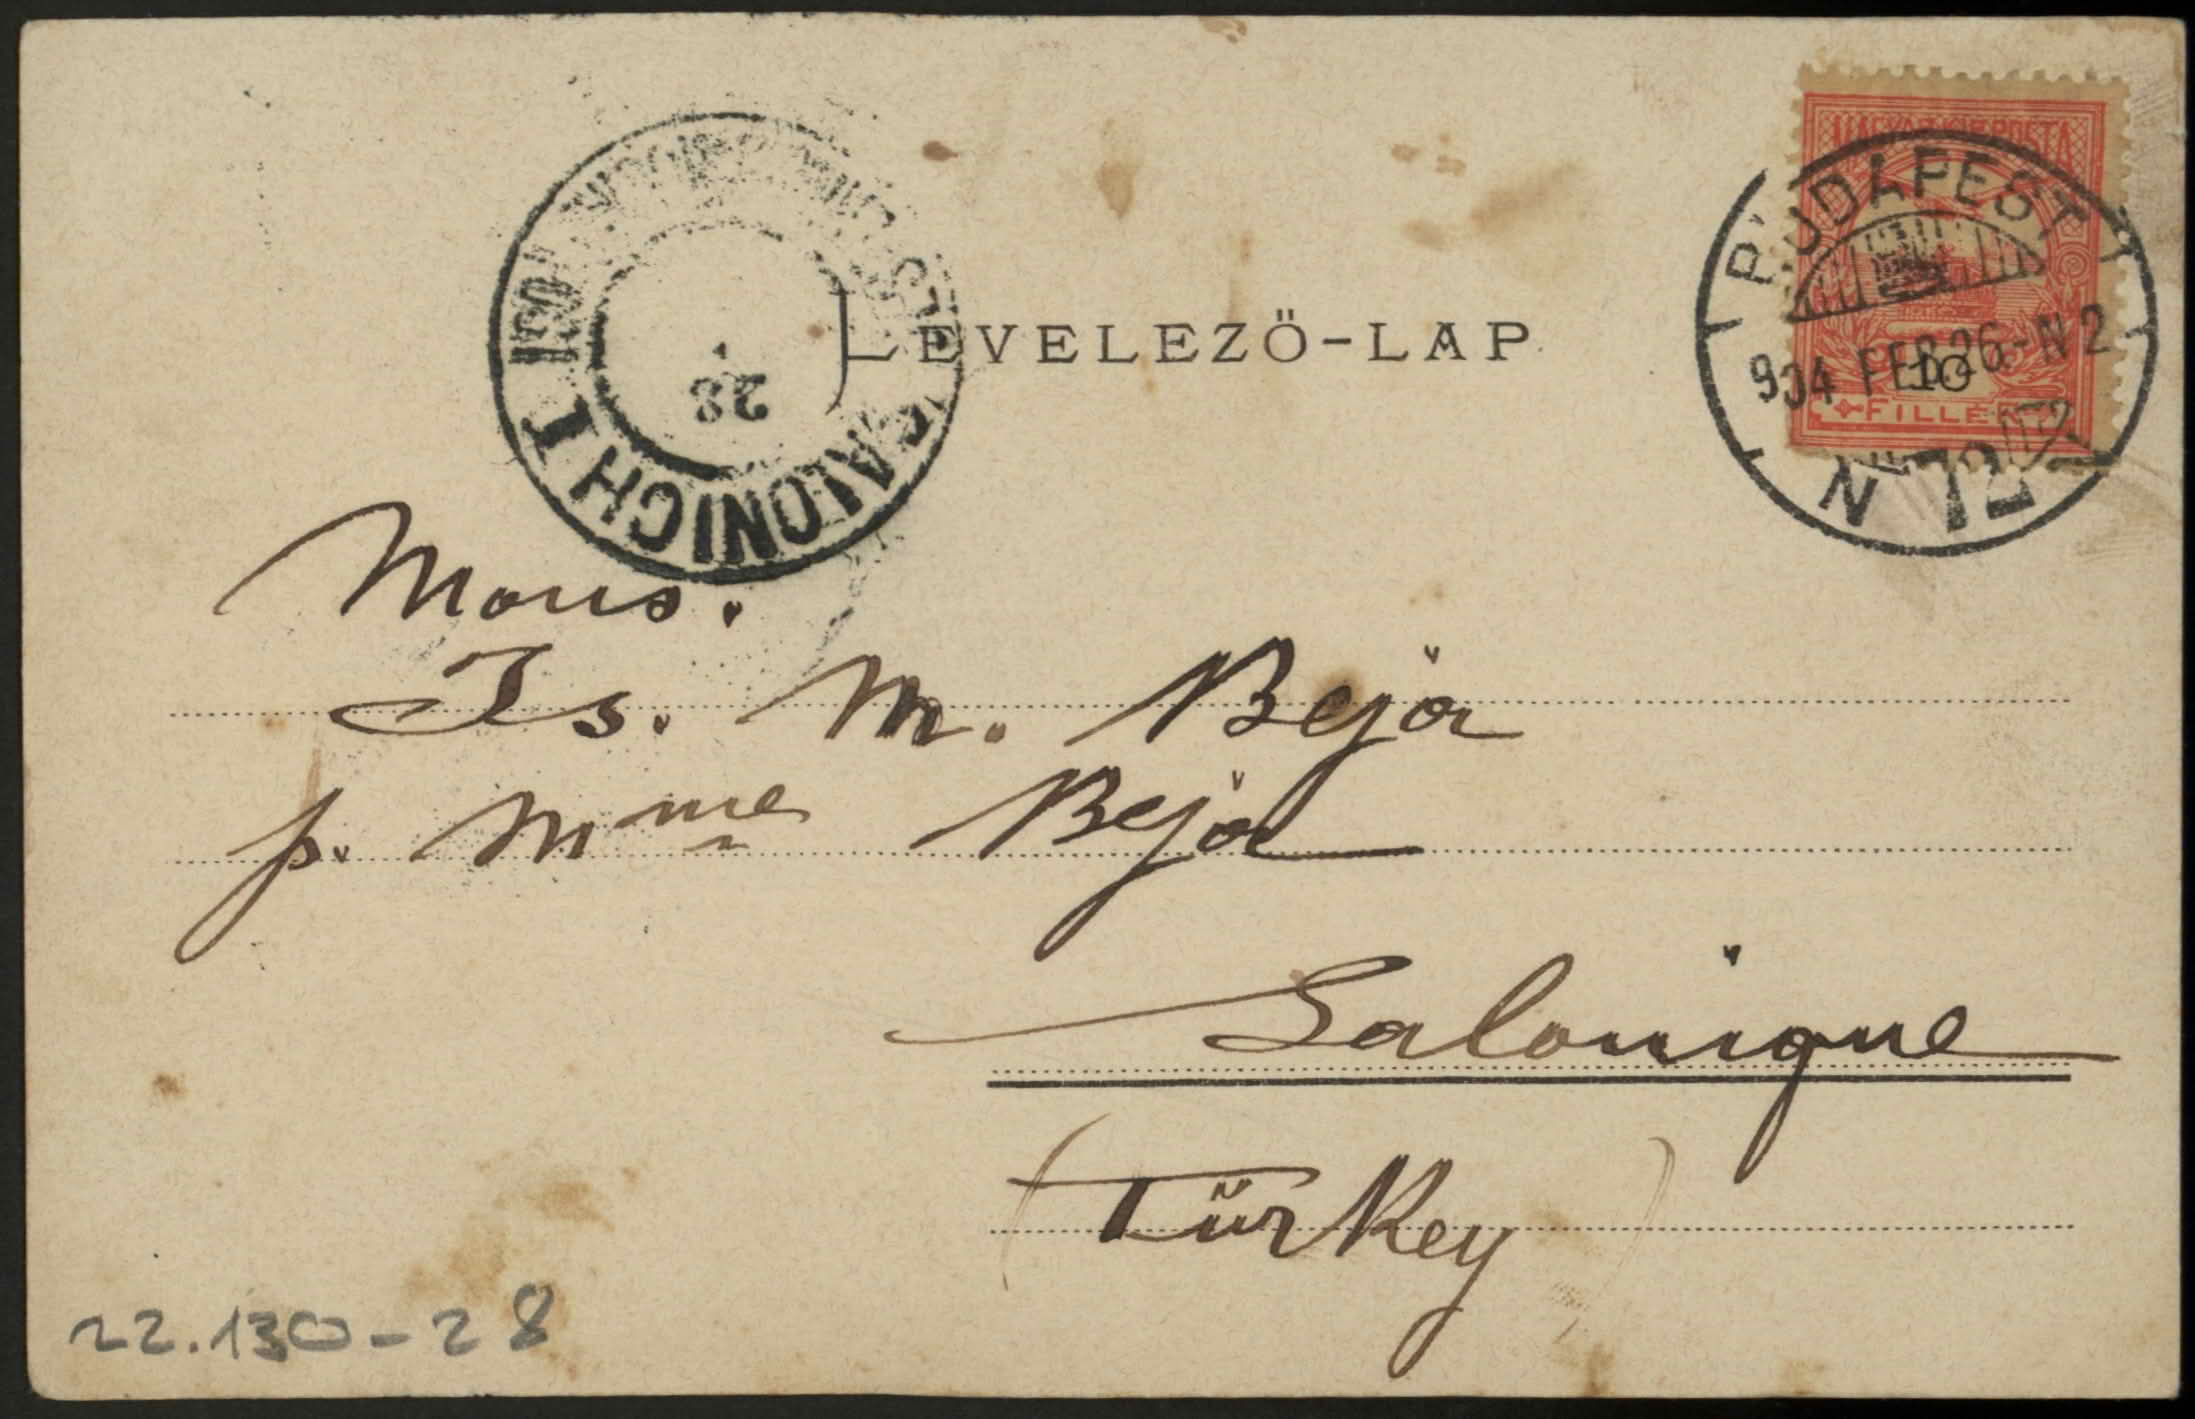 MAGYAR KIR. POSTA
BUDAPEST
904 FEB. 26.-N 2
10
FILLÉR
72
N
SALONICH I
28
LEVELEZÖ-LAP
Mons.
Is. M. Beja
p. Mme Beja
Salonique
(Türkey)
22.130-28